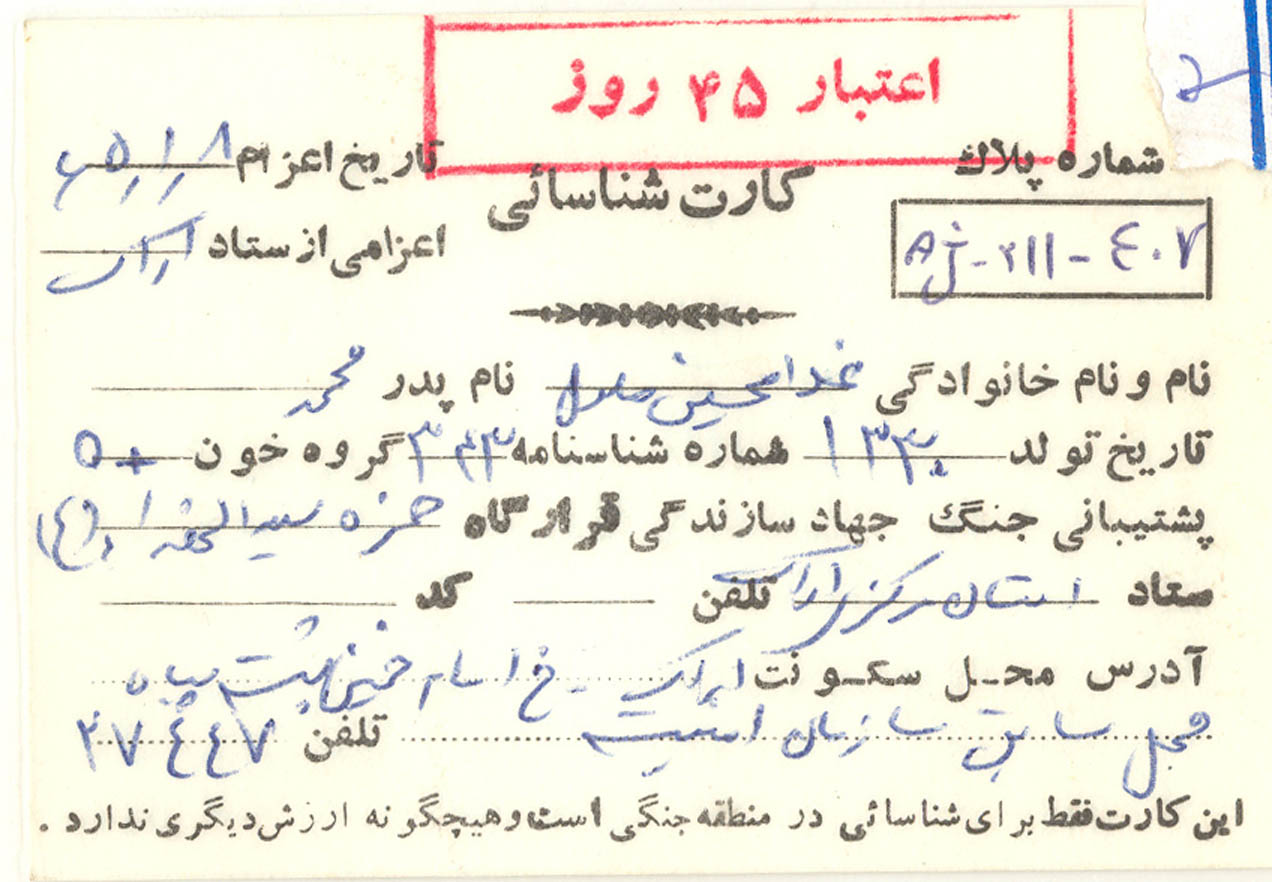 اعتبار ۴۵ روز
شماره پلاك
تاریخ اعزام
کارت شناسائی
Aژ-۲۱۱-٤۰۷
اعزامی از ستاد اراک
نام و نام خانوادگی غلامحسین نام پدر محمد
تاریخ تولد ۱۳۳۰ شماره شناسنامه ۳۴۳ گروه خون O+
پشتیبانی جنگ جهاد سازندگی قرارگاه حمزه سیدالشهداء (ع)
ستاد استان مرکزی اراک تلفن کد
آدرس محل سکونت اراک - خ امام خمینی پشت سپاه
محل سابق سازمان امنیت تلفن ۲۷٤٤۷
این کارت فقط برای شناسائی در منطقه جنگی است و هیچگونه ارزش دیگری ندارد.